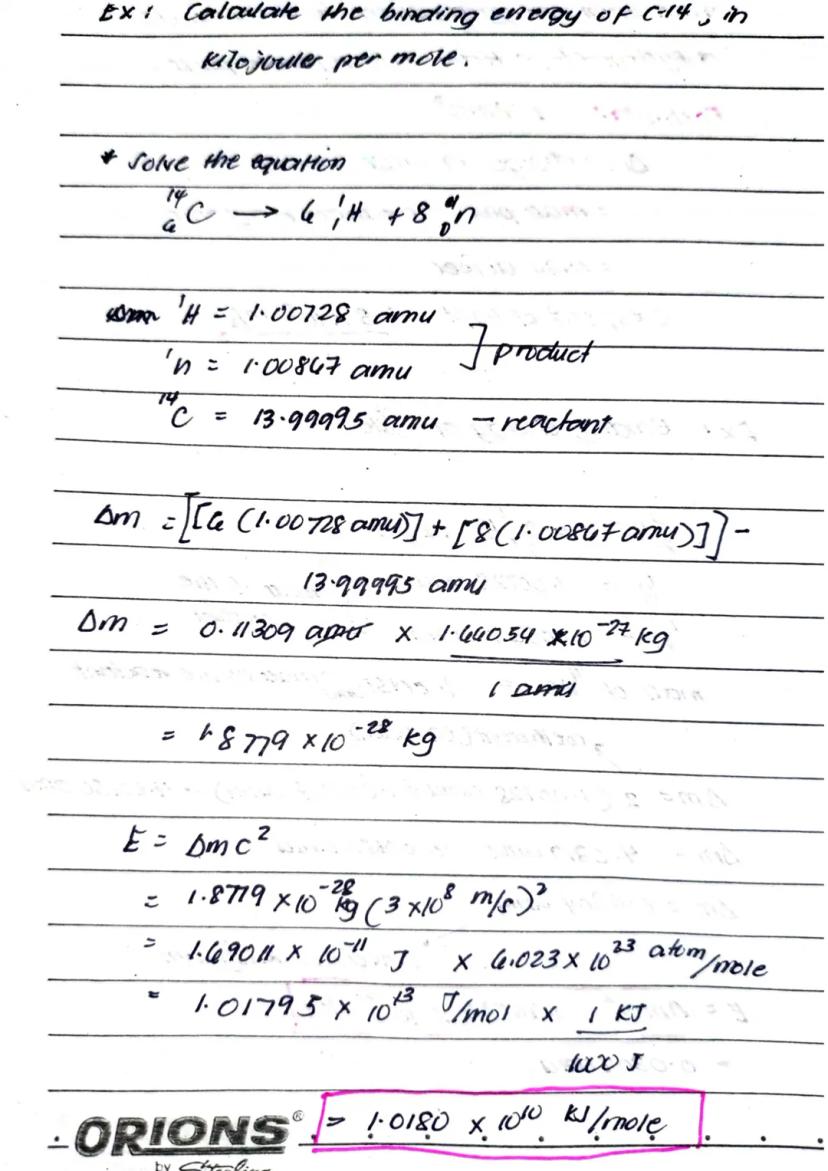 Ex: Calculate the binding energy of C-14, in
kilojouler per mole.
* Solve the equation
¹⁴₆C → 6 ¹₁H + 8 ¹₀n
¹H = 1.00728 amu
¹n = 1.00867 amu ] product
¹⁴C = 13.99995 amu - reactant
Δm = [[6 (1.00728 amu)] + [8 (1.00867 amu)]] -
13.99995 amu
Δm = 0.11309 amu × 1.66054 × 10⁻²⁷ kg
1 amu
= 1.8779 × 10⁻²⁸ kg
E = Δmc²
= 1.8779 × 10⁻²⁸ kg (3 × 10⁸ m/s)²
= 1.69011 × 10⁻¹¹ J × 6.023 × 10²³ atom/mole
= 1.01795 × 10¹³ J/mol × 1 KJ
1000 J
= 1.0180 × 10¹⁰ KJ/mole
ORIONS®
by Sterling